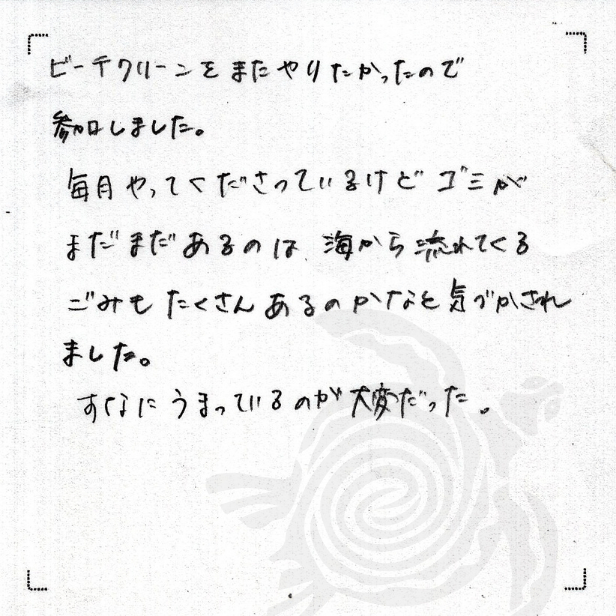 ビーチクリーンをまたやりたかったので
参加しました。
毎月やってくださっているけどゴミが
まだまだあるのは、海から流れてくる
ごみもたくさんあるのかなと気づかされ
ました。
すなにうまっているのが大変だった。